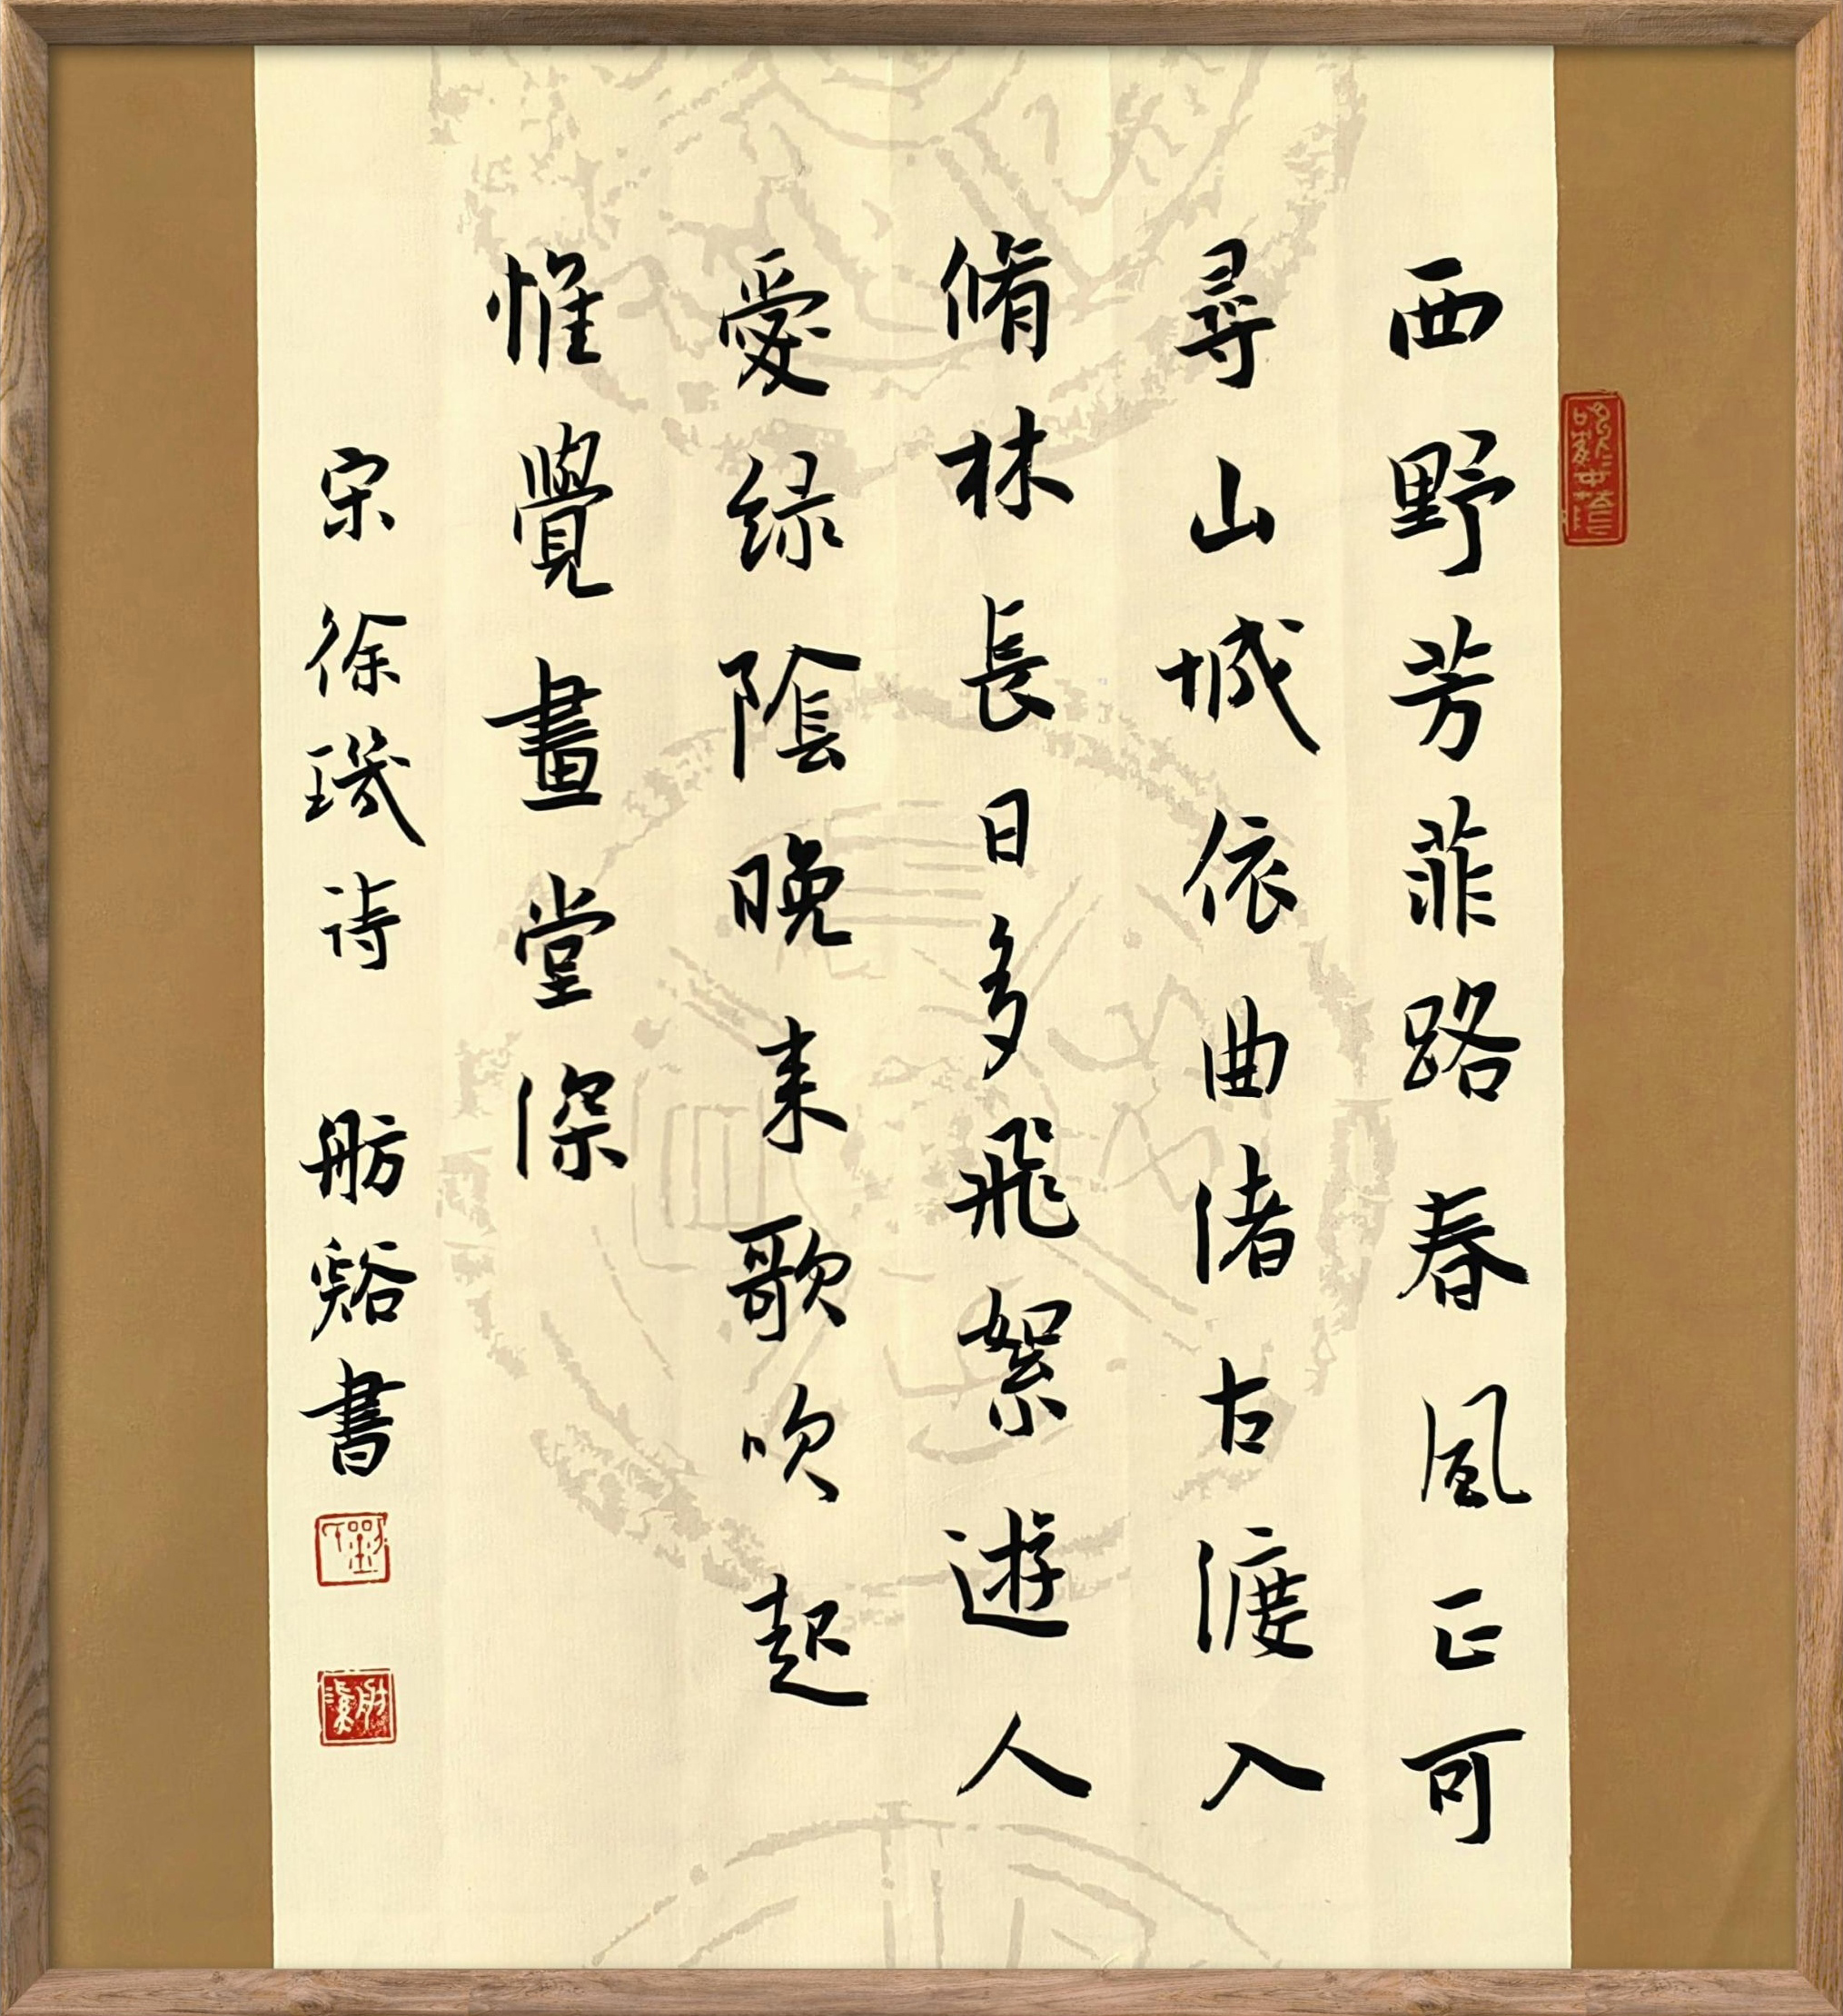 西野芳菲路春風正可
尋山城依曲渚古渡入
脩林長日多飛絮遊人
愛緑陰晚来歌吹起
惟覺畫堂深
宋徐璣詩 舫谿書